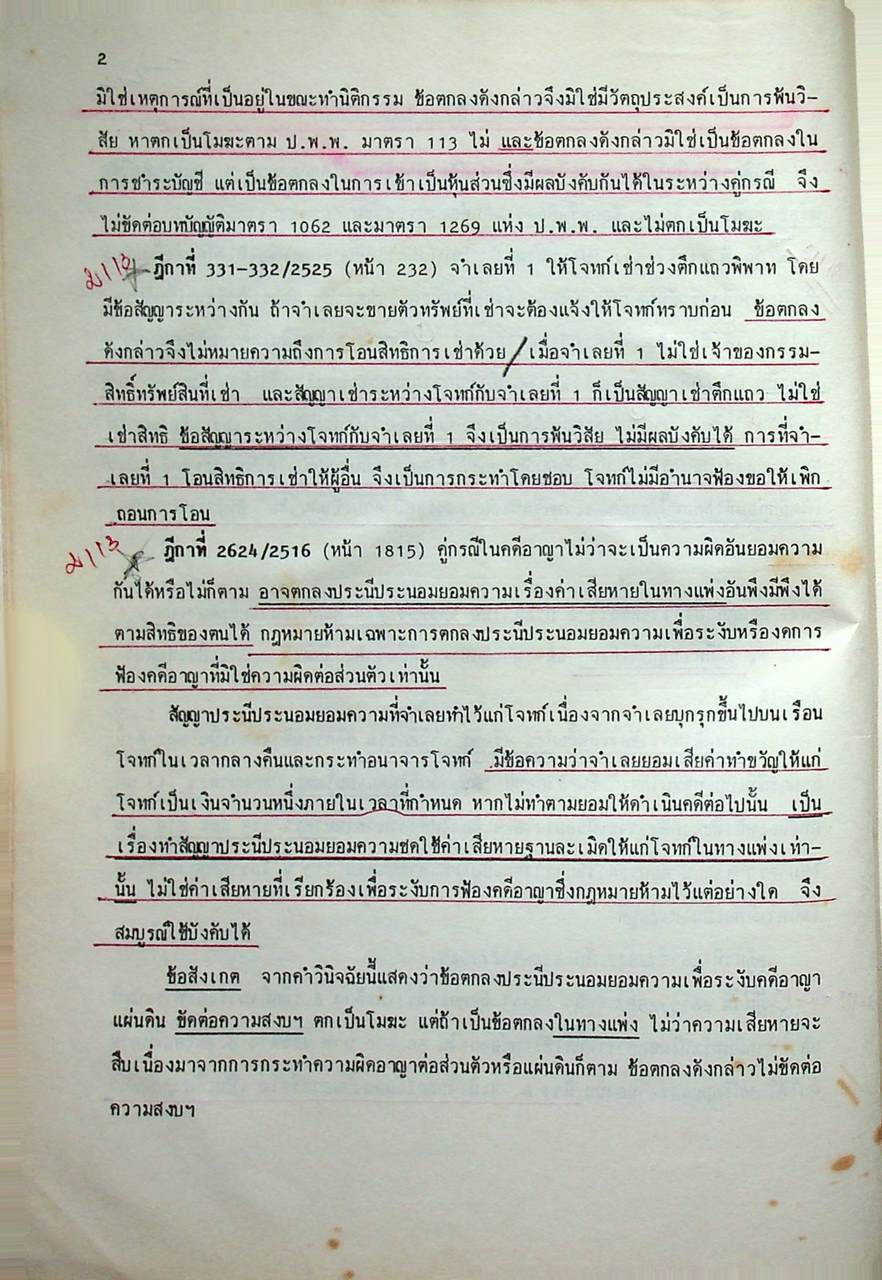 2
มิใช่เหตุการณ์ที่เป็นอยู่ในขณะทำนิติกรรม ข้อตกลงดังกล่าวจึงมิใช่มีวัตถุประสงค์เป็นการพ้นวิ-
สัย หาตกเป็นโมฆะตาม ป.พ.พ. มาตรา 113 ไม่ และข้อตกลงดังกล่าวมิใช่เป็นข้อตกลงใน
การชำระบัญชี แต่เป็นข้อตกลงในการเข้าเป็นหุ้นส่วนซึ่งมีผลบังคับกันได้ในระหว่างคู่กรณี จึง
ไม่ขัดต่อบทบัญญัติมาตรา 1062 และมาตรา 1269 แห่ง ป.พ.พ. และไม่ตกเป็นโมฆะ
ม113 ฎีกาที่ 331-332/2525 (หน้า 232) จำเลยที่ 1 ให้โจทก์เช่าช่วงตึกแถวพิพาท โดย
มีข้อสัญญาระหว่างกัน ถ้าจำเลยจะขายตัวทรัพย์ที่เช่าจะต้องแจ้งให้โจทก์ทราบก่อน ข้อตกลง
ดังกล่าวจึงไม่หมายความถึงการโอนสิทธิการเช่าด้วย/เมื่อจำเลยที่ 1 ไม่ใช่เจ้าของกรรม-
สิทธิ์ทรัพย์สินที่เช่า และสัญญาเช่าระหว่างโจทก์กับจำเลยที่ 1 ก็เป็นสัญญาเช่าตึกแถว ไม่ใช่
เช่าสิทธิ ข้อสัญญาระหว่างโจทก์กับจำเลยที่ 1 จึงเป็นการพ้นวิสัย ไม่มีผลบังคับได้ การที่จำ-
เลยที่ 1 โอนสิทธิการเช่าให้ผู้อื่น จึงเป็นการกระทำโดยชอบ โจทก์ไม่มีอำนาจฟ้องขอให้เพิก
ถอนการโอน
ม113 ฎีกาที่ 2624/2516 (หน้า 1815) คู่กรณีในคดีอาญาไม่ว่าจะเป็นความผิดอันยอมความ
กันได้หรือไม่ก็ตาม อาจตกลงประนีประนอมยอมความเรื่องค่าเสียหายในทางแพ่งอันพึงมีพึงได้
ตามสิทธิของตนได้ กฎหมายห้ามเฉพาะการตกลงประนีประนอมยอมความเพื่อระงับหรืองดการ
ฟ้องคดีอาญาที่มิใช่ความผิดต่อส่วนตัวเท่านั้น
สัญญาประนีประนอมยอมความที่จำเลยทำไว้แก่โจทก์เนื่องจากจำเลยบุกรุกขึ้นไปบนเรือน
โจทก์ในเวลากลางคืนและกระทำอนาจารโจทก์ มีข้อความว่าจำเลยยอมเสียค่าทำขวัญให้แก่
โจทก์เป็นเงินจำนวนหนึ่งภายในเวลาที่กำหนด หากไม่ทำตามยอมให้ดำเนินคดีต่อไปนั้น เป็น
เรื่องทำสัญญาประนีประนอมยอมความชดใช้ค่าเสียหายฐานละเมิดให้แก่โจทก์ในทางแพ่งเท่า-
นั้น ไม่ใช่ค่าเสียหายที่เรียกร้องเพื่อระงับการฟ้องคดีอาญาซึ่งกฎหมายห้ามไว้แต่อย่างใด จึง
สมบูรณ์ใช้บังคับได้
ข้อสังเกต จากคำวินิจฉัยนี้แสดงว่าข้อตกลงประนีประนอมยอมความเพื่อระงับคดีอาญา
แผ่นดิน ขัดต่อความสงบฯ ตกเป็นโมฆะ แต่ถ้าเป็นข้อตกลงในทางแพ่ง ไม่ว่าความเสียหายจะ
สืบเนื่องมาจากการกระทำความผิดอาญาต่อส่วนตัวหรือแผ่นดินก็ตาม ข้อตกลงดังกล่าวไม่ขัดต่อ
ความสงบฯ